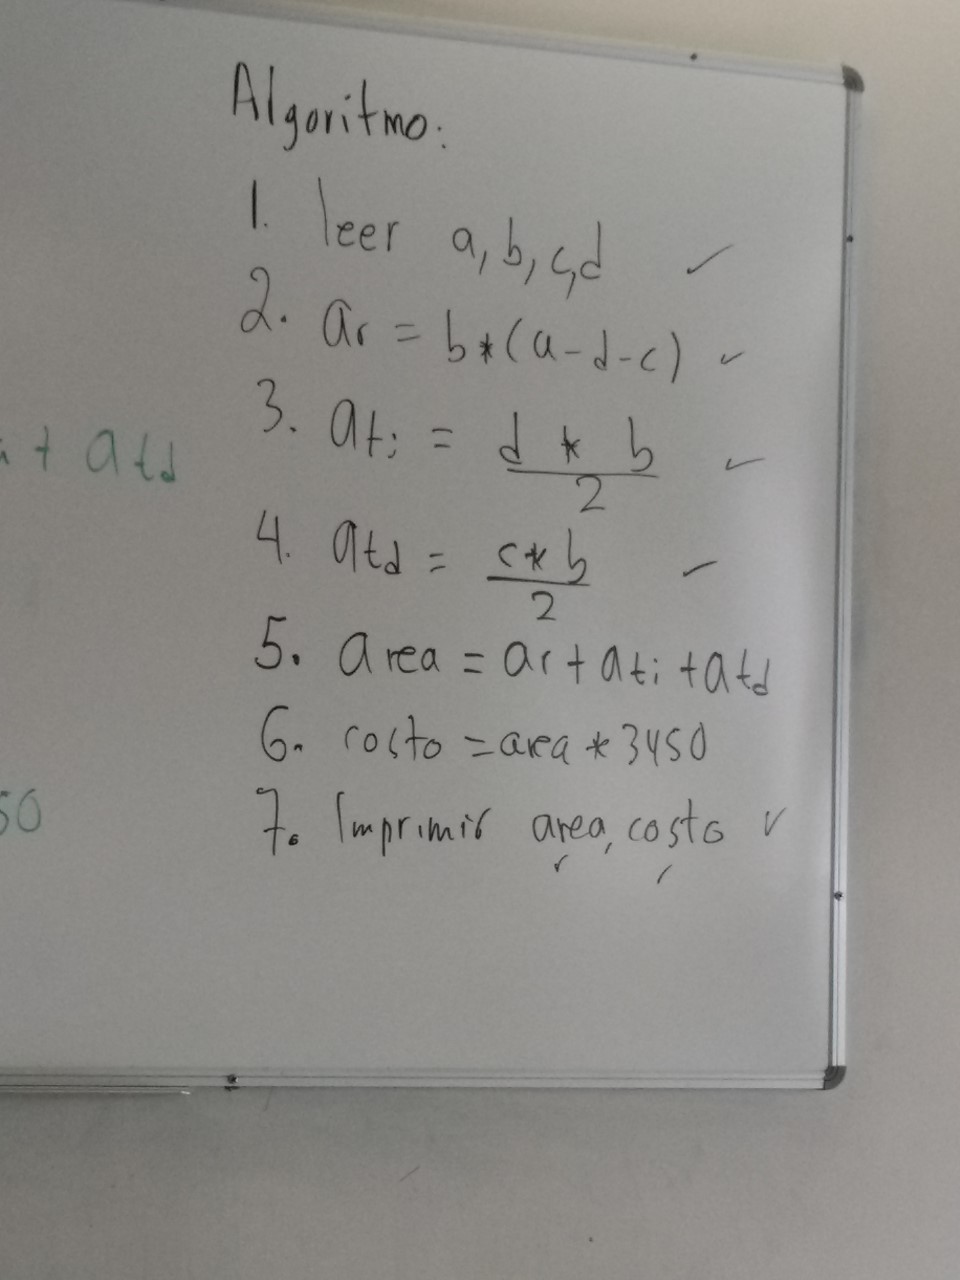 Algoritmo:
1. leer a, b, c, d ✓
2. ar = b*(a-d-c) ✓
3. ati = d * b / 2 ✓
+ atd
4. atd = c*b / 2 ✓
5. area = ar + ati + atd
6. costo = area * 3450
50
7. Imprimir area, costo ✓